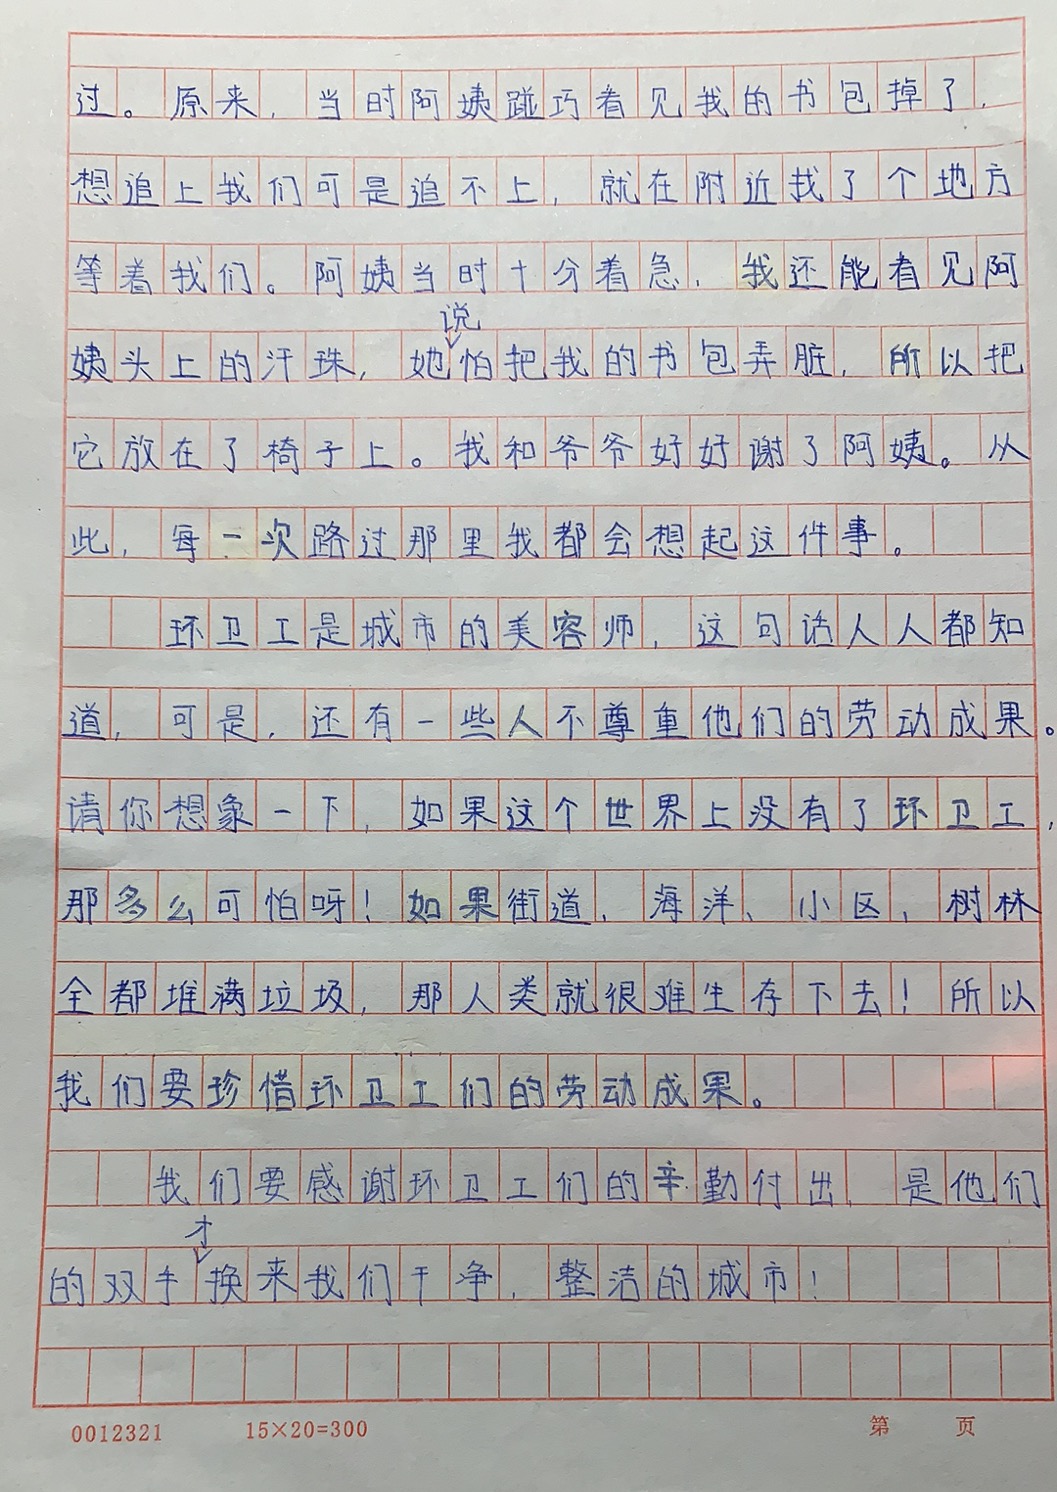 过。原来，当时阿姨碰巧看见我的书包掉了，
想追上我们可是追不上，就在附近找了个地方
等着我们。阿姨当时十分着急，我还能看见阿
说
姨头上的汗珠，她怕把我的书包弄脏，所以把
它放在了椅子上。我和爷爷好好谢了阿姨。从
此，每一次路过那里我都会想起这件事。
环卫工是城市的美容师，这句话人人都知
道，可是，还有一些人不尊重他们的劳动成果。
请你想象一下，如果这个世界上没有了环卫工，
那多么可怕呀！如果街道、海洋、小区、树林
全都堆满垃圾，那人类就很难生存下去！所以
我们要珍惜环卫工们的劳动成果。
我们要感谢环卫工们的辛勤付出，是他们
才
的双手换来我们干净、整洁的城市！
0012321 15×20=300 第 页